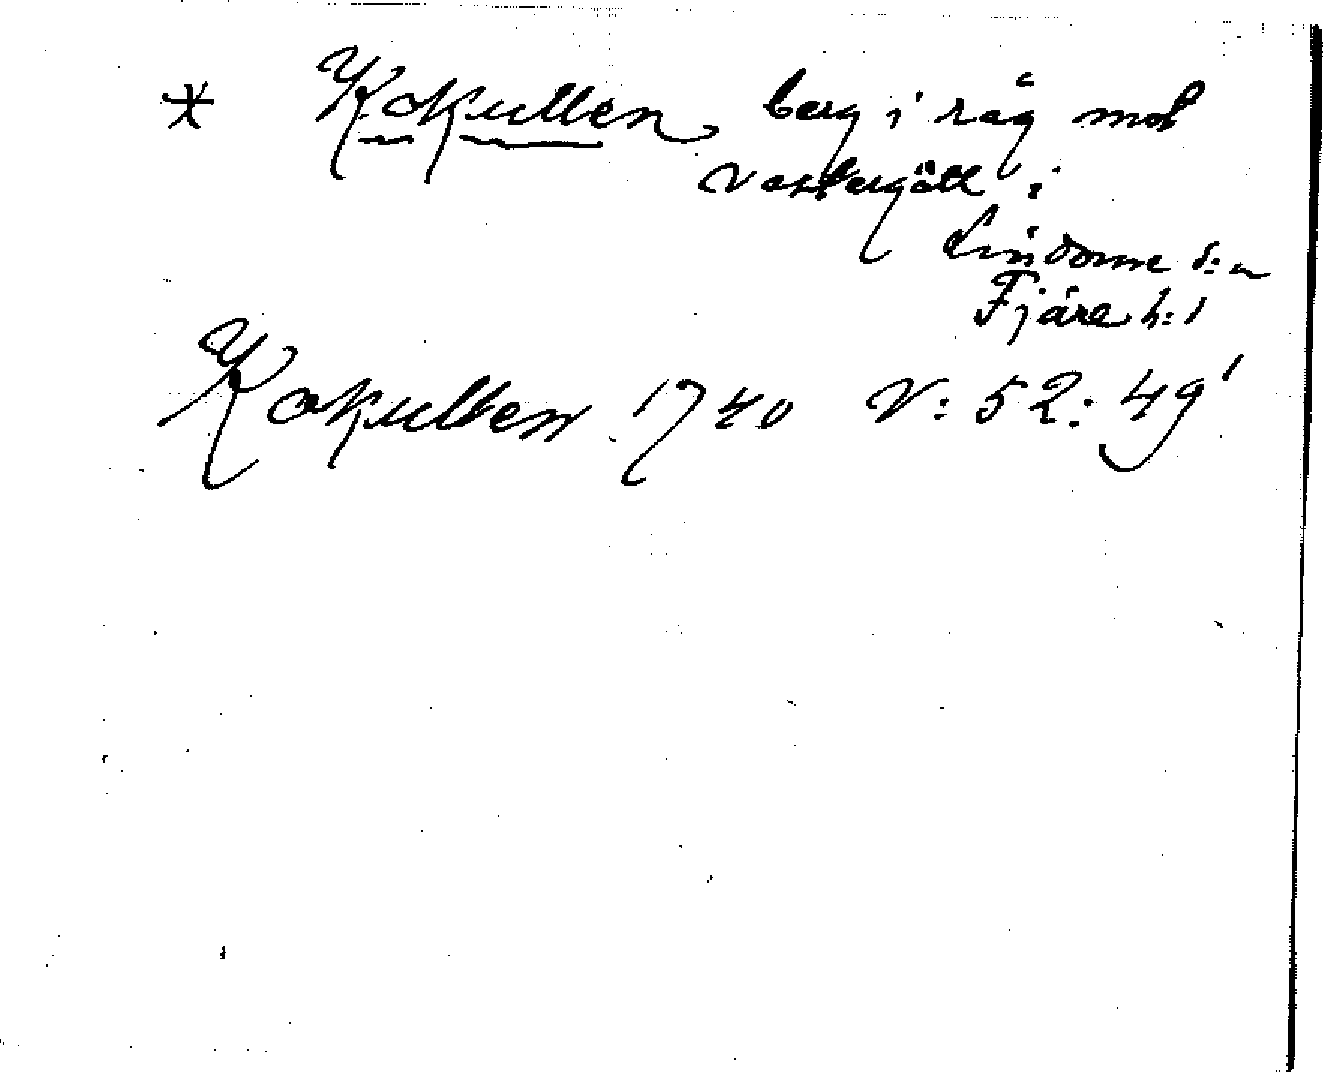 * Kokullen berg i råg mot
Västergötl i
Lindome s:n
Fjäre h:d
Kokullen 1740 V: 52: 49'